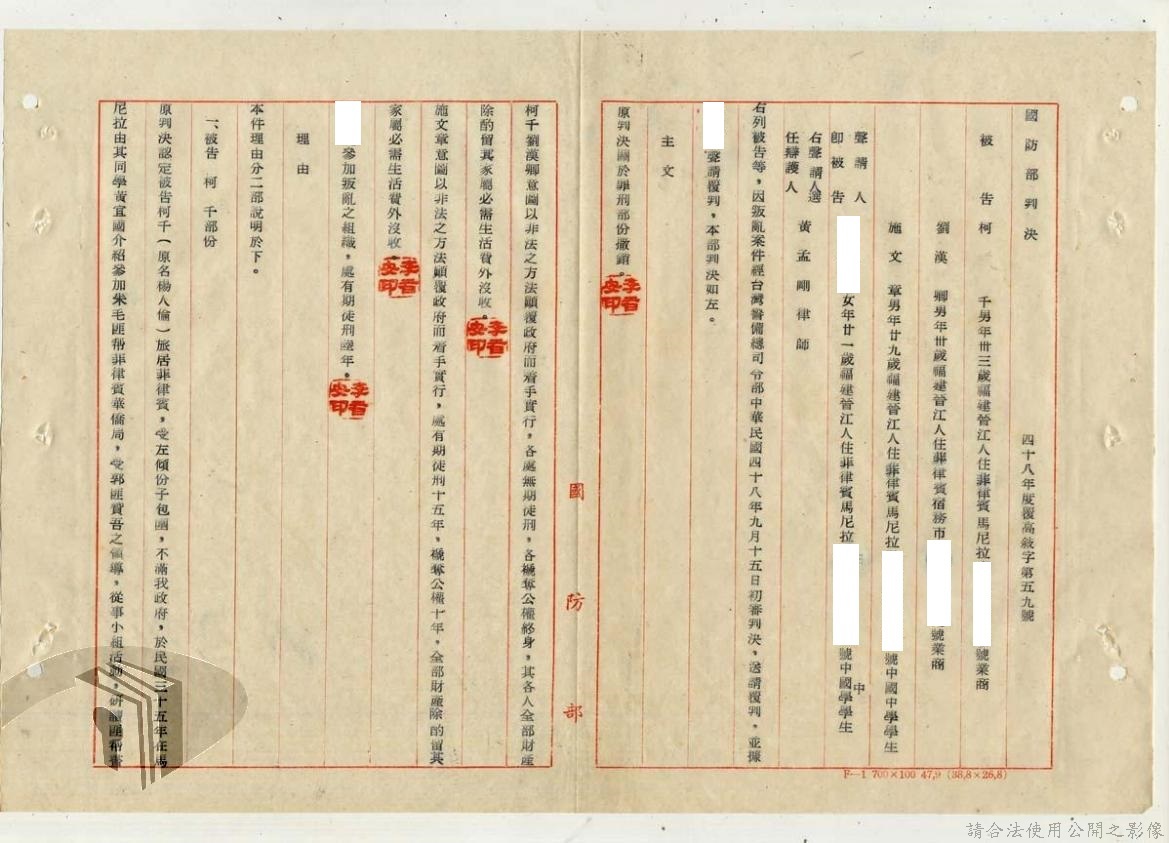 國防部判決　四十八年度覆高敍字第五九號
被告柯　千男年卅三歲福建晉江人住菲律賓馬尼拉　號業商
劉漢卿男年卅歲福建晉江人住菲律賓宿務市　號業商
施文章男年廿九歲福建晉江人住菲律賓馬尼拉　號中國中學學生
聲請人
卽被告　女年廿一歲福建晉江人住菲律賓馬尼拉　號中國中學學生
右聲請人選
任辯護人　黃孟剛律師
右列被告等，因叛亂案件經台灣警備總司令部中華民國四十八年九月十五日初審判決，送請覆判，並據
聲請覆判，本部判決如左。
主文
原判決關於罪刑部份撤銷。
李者安印
國防部
柯千劉漢卿意圖以非法之方法顚覆政府而着手實行，各處無期徒刑，各褫奪公權終身，其各人全部財產
除酌留其家屬必需生活費外沒收。
李者安印
施文章意圖以非法之方法顚覆政府而着手實行，處有期徒刑十五年，褫奪公權十年，全部財產除酌留其
家屬必需生活費外沒收。
李者安印
參加叛亂之組織，處有期徒刑年。
李者安印
理由
本件理由分二部說明於下。
一、被告柯千部份
原判決認定被告柯千（原名楊人倫）旅居菲律賓，受左傾份子包圍，不滿我政府，於民國三十五年在馬
尼拉由其同學黃宜國介紹參加朱毛匪幫菲律賓華僑局，受郭匪實吾之領導，從事小組活動，研讀匪幫書
F—1 700×100 47.9 (38.8×26.8)
請合法使用公開之影像